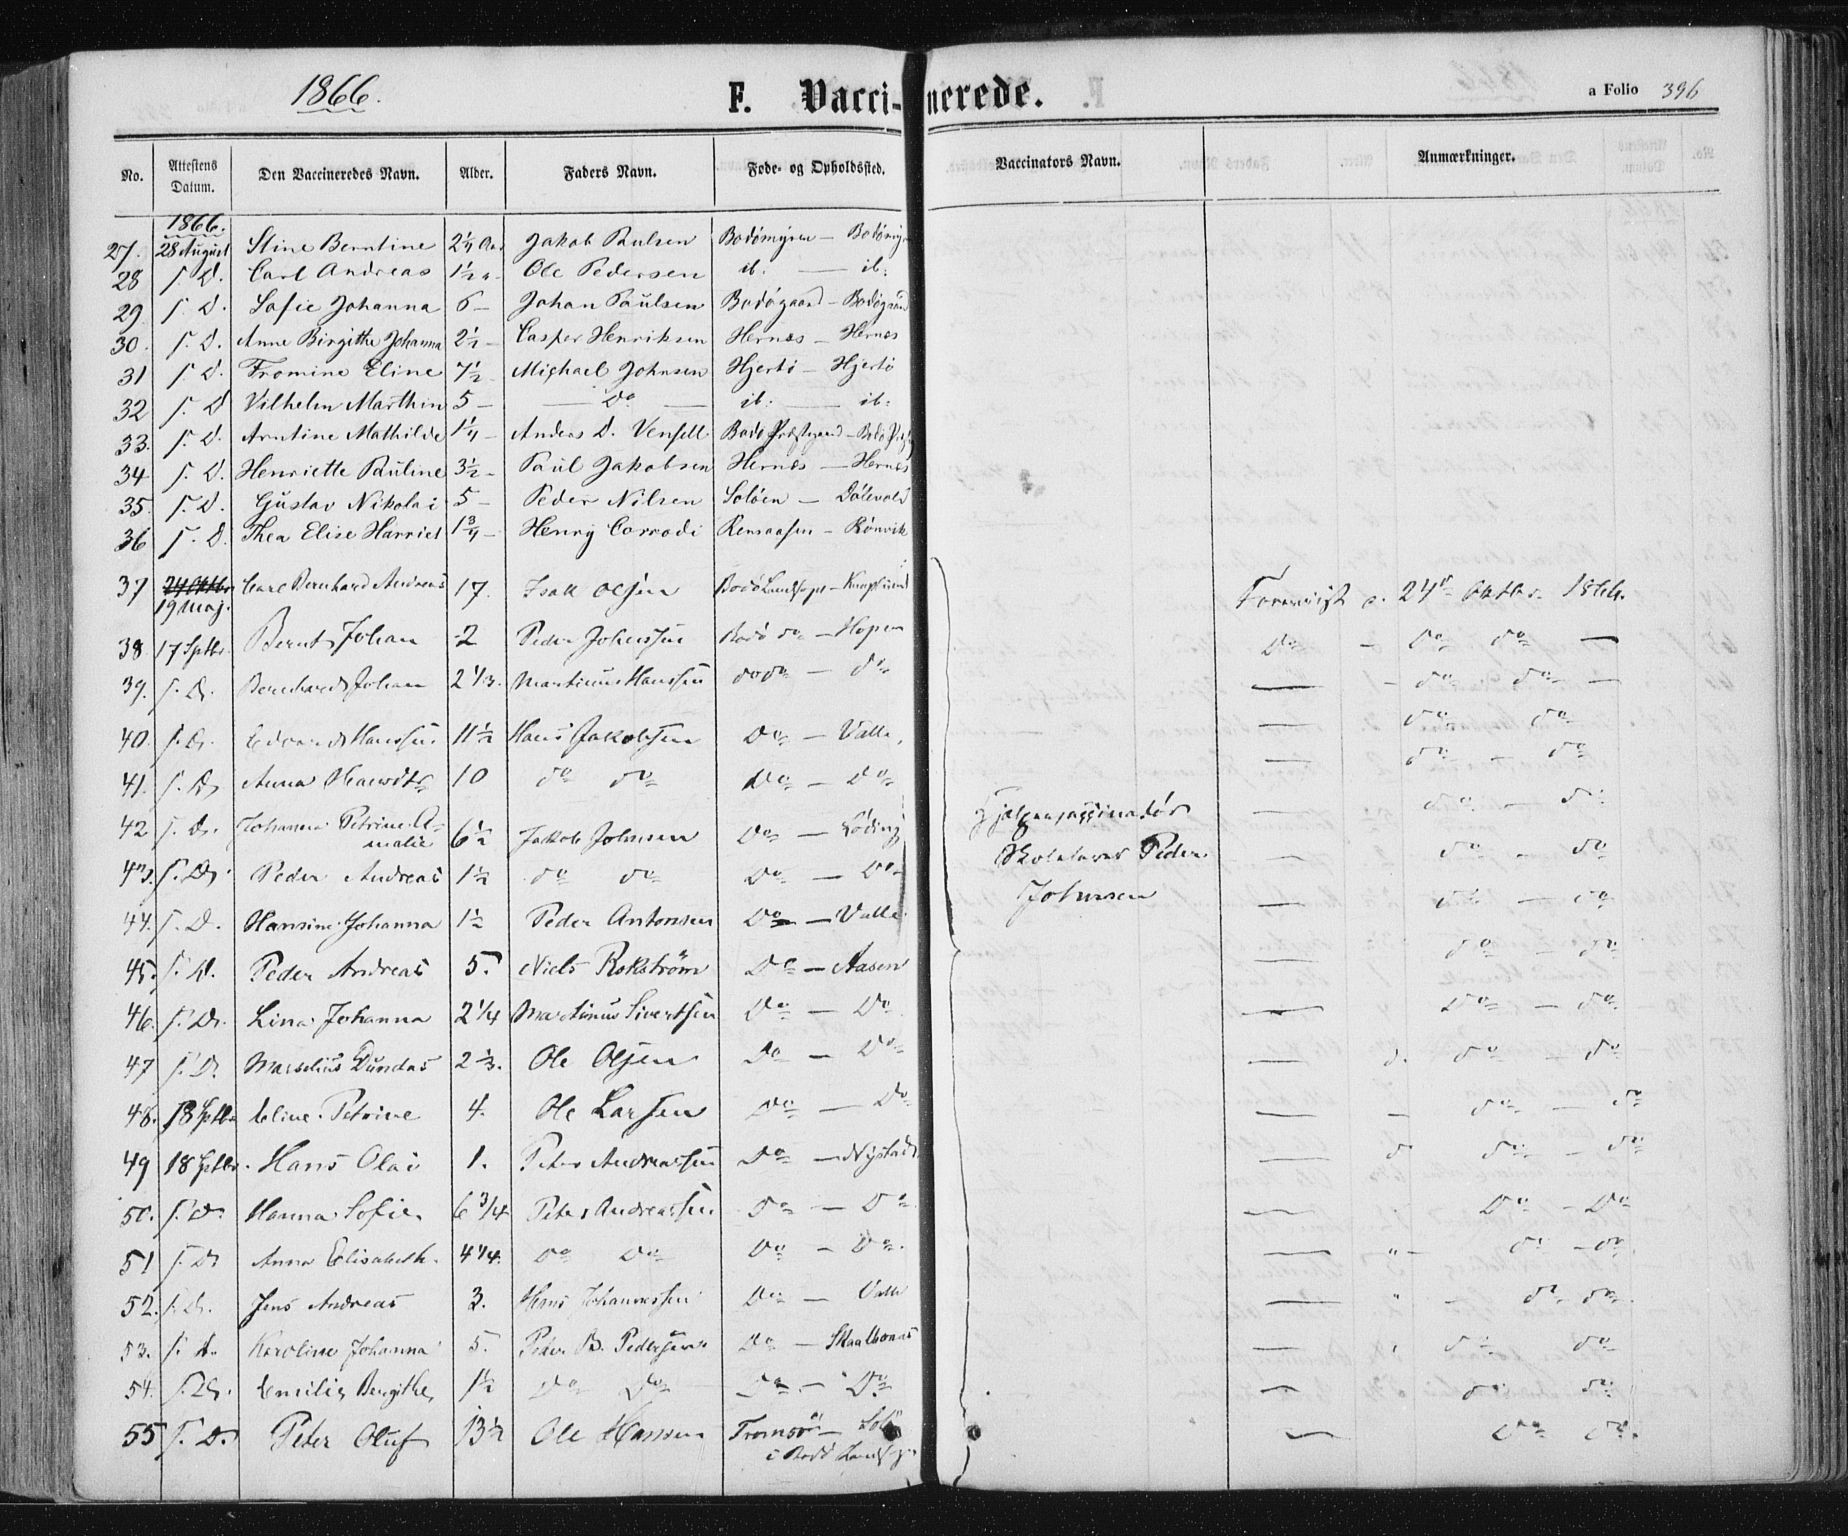 1866. F. Vaccinerede. a Folio 396
No. Attestens Datum. Den Vaccineredes Navn. Alder. Faders Navn. Føde- og Opholdssted. Vaccinators Navn. Anmærkninger.
1866.
27. 28 August Stine Berntine 2 1/4 Aar Jakob Paulsen Bodömyren —
28 s. D. Carl Andreas 1 1/2 Ole Pedersen ib. — ib.
29 s. D. Sofie Johanna 6 — Johan Paulsen Bodøgaard — Bodøgaard
30. s. D. Anne Birgithe Johanna 2 1/2 — Casper Henriksen Hernæs — Hernæs
31 s. D. Fromine Eline 7 1/2 — Michael Johnsen Hjertö — Hjertö
32 s. D Vilhelm Marthin 5 — — Do — ib. — ib.
33. s. D. Arntine Mathilde 1 1/4 — Anders D. Bodø
34 s. D. Henriette Pauline 3 1/2 — Paul Jakobsen Hernæs — Hernæs
35. s. D. Gustav Nikolai 5 — Peder Nilsen Solöen —
36 s. D. Thea Elise Harriet 1 3/4 — Henry Corrodi — Rönvik
37 24 Oktbr 19 Maj. Carl Bernhard Andreas 17. Isak Olsen Bodø Landsogn — 24de Oktbr. 1866.
38. 17 Septbr. Bernt Johan 2 Peder Johnssen Bodø do — Hopen Do — do do —
39. s. D. Bernhard Johan 2 1/3. Martinus Hanssen dodo — do — do — do —
40. s. D. Edvard Hanssen 11 1/2 Hans Jakobsen Do — Valle. — do do
41. s. D. Anna 10 do do Do — Do — do — do
42 s. D. Johanna Petrine Amalie 6 1/2 Jakob Johnsen Do — Löding — do — do
43. s. D. Peder Andreas 1 1/2 do do Do — Do Skolelærer Peder Johnsen — do — do
44. s. D. Hansine Johanna 1 1/2 Peder Antonsen Do — Valle. — do — do
45. s. D. Peder Andreas 5. Niels Rokström Do — Aasen — do — do
46. s. D. Lina Johanna 2 1/4 Martinus Sivertsen Do — Do — Do — do
47 s. D. Marselius Dundas 2 1/3. Ole Olsen Do — Do — do — do
48. 18 Septbr Eline Petrine 4. Ole Larsen Do — Do — do — do
49 18 Septbr. Hans Olai 1. Peter Andreassen Do — Nystad — do — do
50. s. D. Hanna Sofie 6 3/4 Peter Andreassen Do — Do — Do — Do
51 s. D. Anna Elisabeth 4 1/4. Do Do Do — Do. — " — do — do
52. s. D. Jens Andreas 3. Hans Johannessen Do — Valle — " — do — do
53. s. D. Karoline Johanna 5. Peder B. Pedersen Do — Skaalbonæs — do do
54. s. D. Emilie Bergithe 1 1/2 Do Do Do — Do — do do
55 s. D. Peder Oluf 13 1/2 Ole Hanssen Tromsö — i Bodø — Do do.